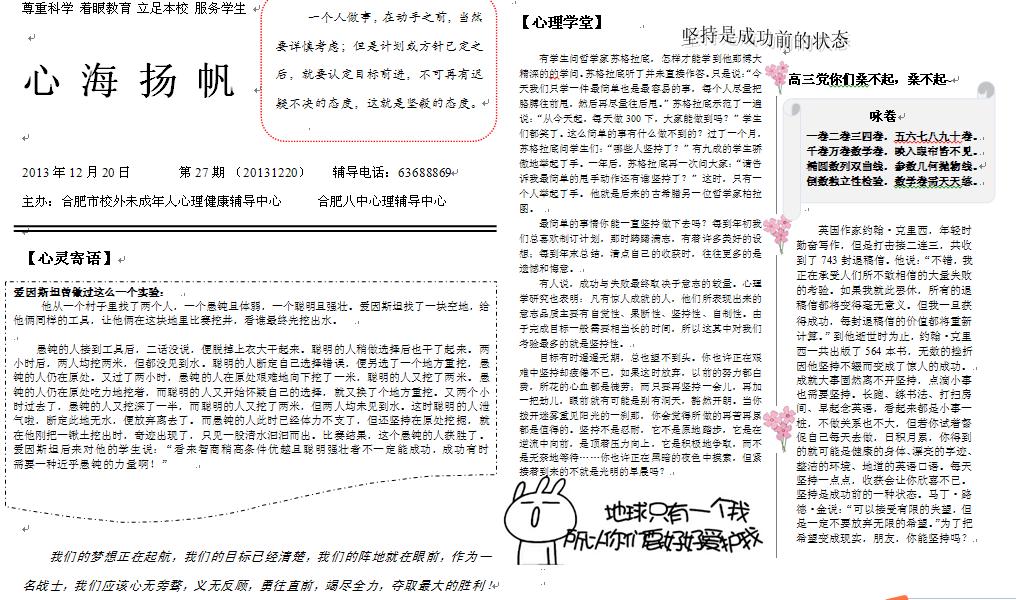 尊重科学 着眼教育 立足本校 服务学生
心 海 扬 帆
一个人做事，在动手之前，当然
要详慎考虑；但是计划或方针已定之
后，就要认定目标前进，不可再有迟
疑不决的态度，这就是坚毅的态度。
2013 年 12 月 20 日 第 27 期 （20131220） 辅导电话：63688869
主办：合肥市校外未成年人心理健康辅导中心 合肥八中心理辅导中心
【心灵寄语】
爱因斯坦曾做过这么一个实验：
他从一个村子里找了两个人，一个愚钝且体弱，一个聪明且强壮。爱因斯坦找了一块空地，给
他俩同样的工具，让他俩在这块地里比赛挖井，看谁最终先挖出水。
愚钝的人接到工具后，二话没说，便脱掉上衣大干起来。聪明的人稍做选择后也干了起来。两
小时后，两人均挖两米，但都没见到水。聪明的人断定自己选择错误，便另选了一个地方重挖，愚
钝的人仍在原处。又过了两小时，愚钝的人在原处艰难地向下挖了一米，聪明的人又挖了两米。愚
钝的人仍在原处吃力地挖着，而聪明的人又开始怀疑自己的选择，就又换了个地方重挖。又两个小
时过去了，愚钝的人又挖深了一半，而聪明的人又挖了两米，但两人均未见到水。这时聪明的人泄
气啦，断定此地无水，便放弃离去了。而愚钝的人此时已经体力不支了，但还坚持在原处挖掘，就
在他刚把一锹土挖出时，奇迹出现了，只见一股清水汩汩而出。比赛结果，这个愚钝的人获胜了。
爱因斯坦后来对他的学生说：“看来智商稍高条件优越且聪明强壮者不一定能成功，成功有时
需要一种近乎愚钝的力量啊！”
我们的梦想正在起航，我们的目标已经清楚，我们的阵地就在眼前，作为一
名战士，我们应该心无旁骛，义无反顾，勇往直前，竭尽全力，夺取最大的胜利！
【心理学堂】
坚持是成功前的状态
有学生问哲学家苏格拉底，怎样才能学到他那博大
精深的的学问。苏格拉底听了并未直接作答。只是说：“今
天我们只学一件最简单也是最容易的事，每个人尽量把
胳膊往前甩，然后再尽量往后甩。”苏格拉底示范了一遍
说：“从今天起，每天做 300 下，大家能做到吗？”学生
们都笑了。这么简单的事有什么做不到的？过了一个月，
苏格拉底问学生们：“哪些人坚持了？”有九成的学生骄
傲地举起了手。一年后，苏格拉底再一次问大家：“请告
诉我最简单的甩手动作还有谁坚持了？”这时，只有一
个人举起了手。他就是后来的古希腊另一位哲学家柏拉
图。
最简单的事情你能一直坚持做下去吗？每到年初我
们总喜欢制订计划，那时踌躇满志，有着许多美好的设
想；每到年末总结，清点自己的收获时，往往更多的是
遗憾和悔意。
有人说，成功与失败最终取决于意志的较量。心理
学研究也表明：凡有惊人成就的人，他们所表现出来的
意志品质主要有自觉性、果断性、坚持性、自制性。由
于完成目标一般需要相当长的时间，所以这其中对我们
考验最多的就是坚持性。
目标有时遥遥无期，总也望不到头。你也许正在艰
难中坚持却疲倦不已，如果这时放弃，以前的努力都白
费，所花的心血都是徒劳；而只要再坚持一会儿，再加
一把劲儿，眼前就有可能是别有洞天，豁然开朗。当你
拨开迷雾重见阳光的一刹那，你会觉得所做的再苦再累
都是值得的。坚持不是忍耐，它不是原地踏步，它是在
逆流中向前，是顶着压力向上，它是积极地争取，而不
是无奈地等待……你也许正在黑暗的夜色中摸索，但紧
接着到来的不就是光明的早晨吗？
地球只有一个我
所以你们要好好爱护我
高三党你们桑不起，桑不起~
咏卷
一卷二卷三四卷，五六七八九十卷。
千卷万卷数学卷，
椭圆数列双曲线，参数几何抛物线。
倒数独立性检验，数学卷满天天练。
英国作家约翰·克里西，年轻时
勤奋写作，但是打击接二连三，共收
到了 743 封退稿信。他说：“不错，我
正在承受人们所不敢相信的大量失败
的考验。如果我就此罢休，所有的退
稿信都将变得毫无意义。但我一旦获
得成功，每封退稿信的价值都将重新
计算。”到他逝世时为止，约翰·克里
西一共出版了 564 本书，无数的挫折
因他坚持不懈而变成了惊人的成功。
成就大事固然离不开坚持，点滴小事
也需要坚持。长跑、练书法、打扫房
间、早起念英语，看起来都是小事一
桩，不做关系也不大，但若你试着督
促自己每天去做，日积月累，你得到
的就可能是健康的身体、漂亮的字迹、
整洁的环境、地道的英语口语。每天
坚持一点点，收获会让你欣喜不已。
坚持是成功前的一种状态。马丁·路
德·金说：“可以接受有限的失望，但
是一定不要放弃无限的希望。”为了把
希望变成现实，朋友，你能坚持吗？